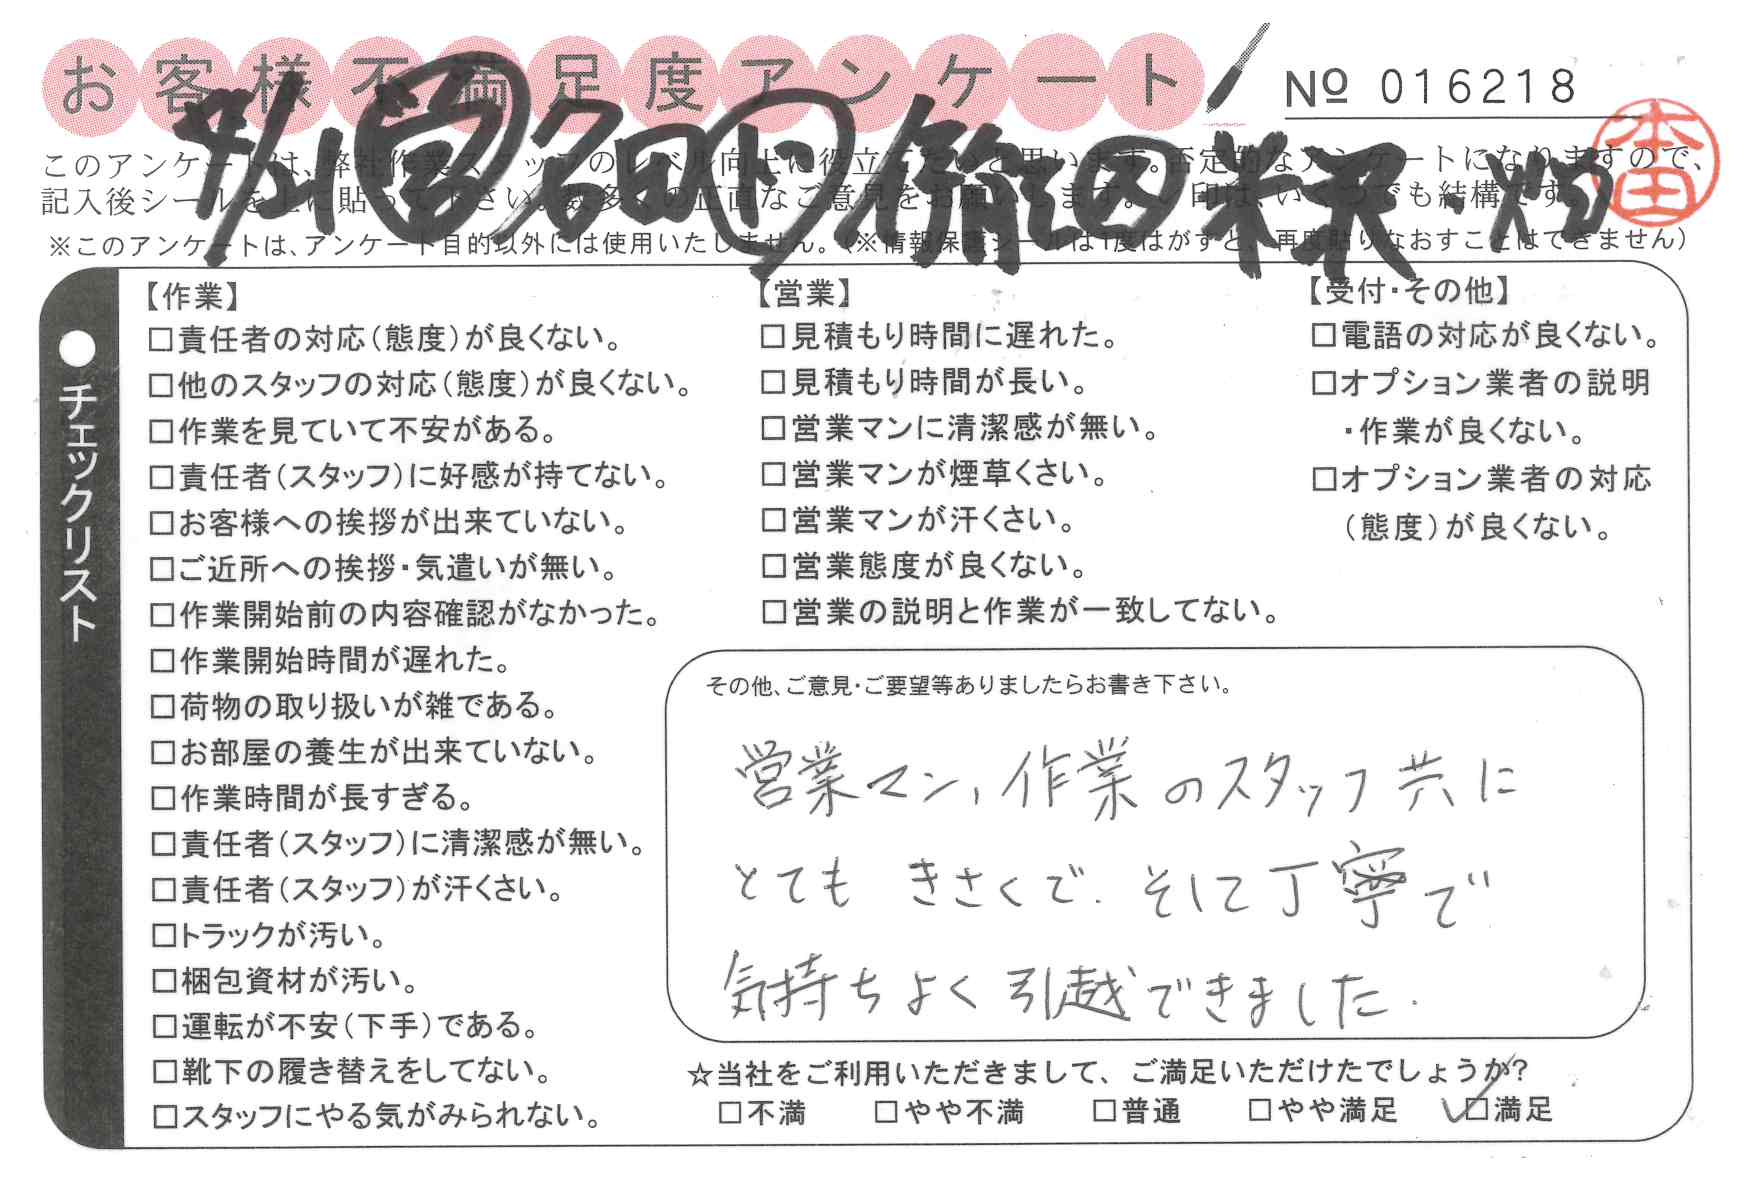 お客様不満足度アンケート
№ 016218
このアンケートは、弊社作業スタッフのレベル向上に役立てたいと思います。否定的なアンケートになりますので、
記入後シールを上に貼って下さい。数多くの正直なご意見をお願いします。✓印は、いくつでも結構です。
※このアンケートは、アンケート目的以外には使用いたしません。（※情報保護シールは1度はがすと、再度貼りなおすことはできません）
営 名田 作 米沢・畑
本田
●チェックリスト
【作業】
□責任者の対応（態度）が良くない。
□他のスタッフの対応（態度）が良くない。
□作業を見ていて不安がある。
□責任者（スタッフ）に好感が持てない。
□お客様への挨拶が出来ていない。
□ご近所への挨拶・気遣いが無い。
□作業開始前の内容確認がなかった。
□作業開始時間が遅れた。
□荷物の取り扱いが雑である。
□お部屋の養生が出来ていない。
□作業時間が長すぎる。
□責任者（スタッフ）に清潔感が無い。
□責任者（スタッフ）が汗くさい。
□トラックが汚い。
□梱包資材が汚い。
□運転が不安（下手）である。
□靴下の履き替えをしてない。
□スタッフにやる気がみられない。
【営業】
□見積もり時間に遅れた。
□見積もり時間が長い。
□営業マンに清潔感が無い。
□営業マンが煙草くさい。
□営業マンが汗くさい。
□営業態度が良くない。
□営業の説明と作業が一致してない。
【受付・その他】
□電話の対応が良くない。
□オプション業者の説明
・作業が良くない。
□オプション業者の対応
（態度）が良くない。
その他、ご意見・ご要望等ありましたらお書き下さい。
営業マン、作業のスタッフ共に
とても きさくで、そして丁寧で
気持ちよく引越できました.
☆当社をご利用いただきまして、ご満足いただけたでしょうか?
□不満 □やや不満 □普通 □やや満足 ☑満足